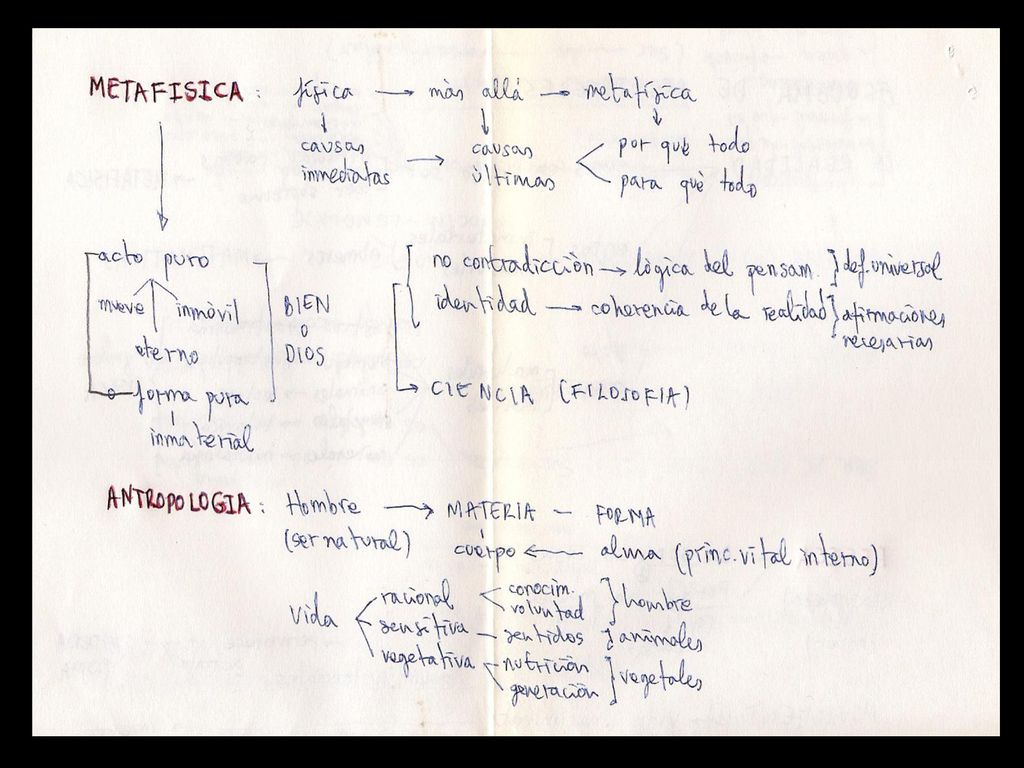 METAFISICA : física → más allá → metafísica
causas inmediatas → causas últimas
por qué todo
para qué todo
acto puro
mueve inmóvil
eterno
forma pura
inmaterial
BIEN
o
DIOS
no contradicción → lógica del pensam. ] def. universal
identidad → coherencia de la realidad ] afirmaciones
necesarias
CIENCIA (FILOSOFIA)
ANTROPOLOGIA : Hombre → MATERIA – FORMA
(ser natural) cuerpo ← alma (princ. vital interno)
vida
racional conocim. voluntad ] hombre
sensitiva – sentidos ] animales
vegetativa nutrición generación ] vegetales